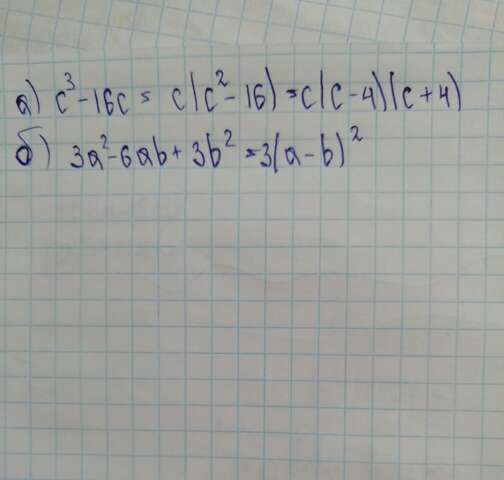 а) c³-16c = c(c²-16)=c(c-4)(c+4)
б) 3a²-6ab+3b²=3(a-b)²